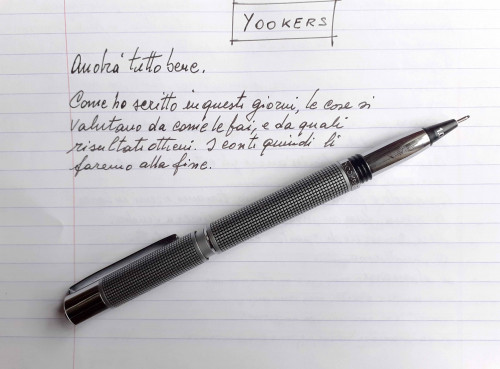 YOOKERS
Andrà tutto bene.
Come ho scritto in questi giorni, le cose si
valutano da come le fai, e da quali
risultati ottieni. I conti quindi li
faremo alla fine.